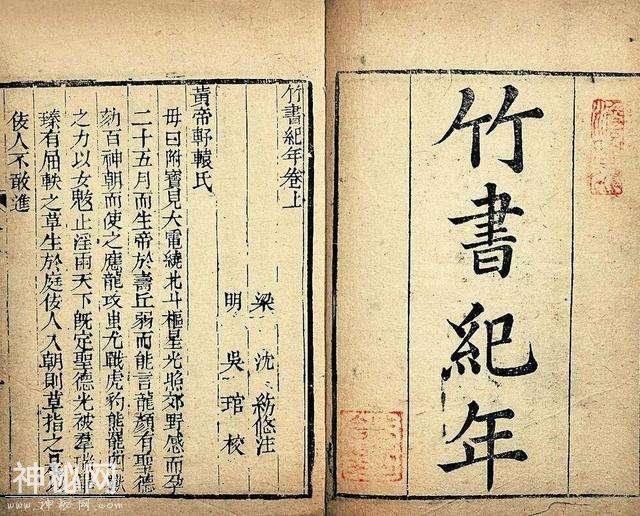 竹書紀年
竹書紀年卷上
梁 沈約附注
明 吳琯校
黃帝軒轅氏
母曰附寶見大電繞北斗樞星光照郊野感而孕
二十五月而生帝於壽丘弱而能言龍顏有聖德
劾百神朝而使之應龍攻蚩尤戰虎豹熊羆四獸
之力以女魃止淫雨天下既定聖德光被羣瑞畢
臻有屈軼之草生於庭佞人入朝則草指之是
佞人不敢進
神秘网
www.神秘网.com